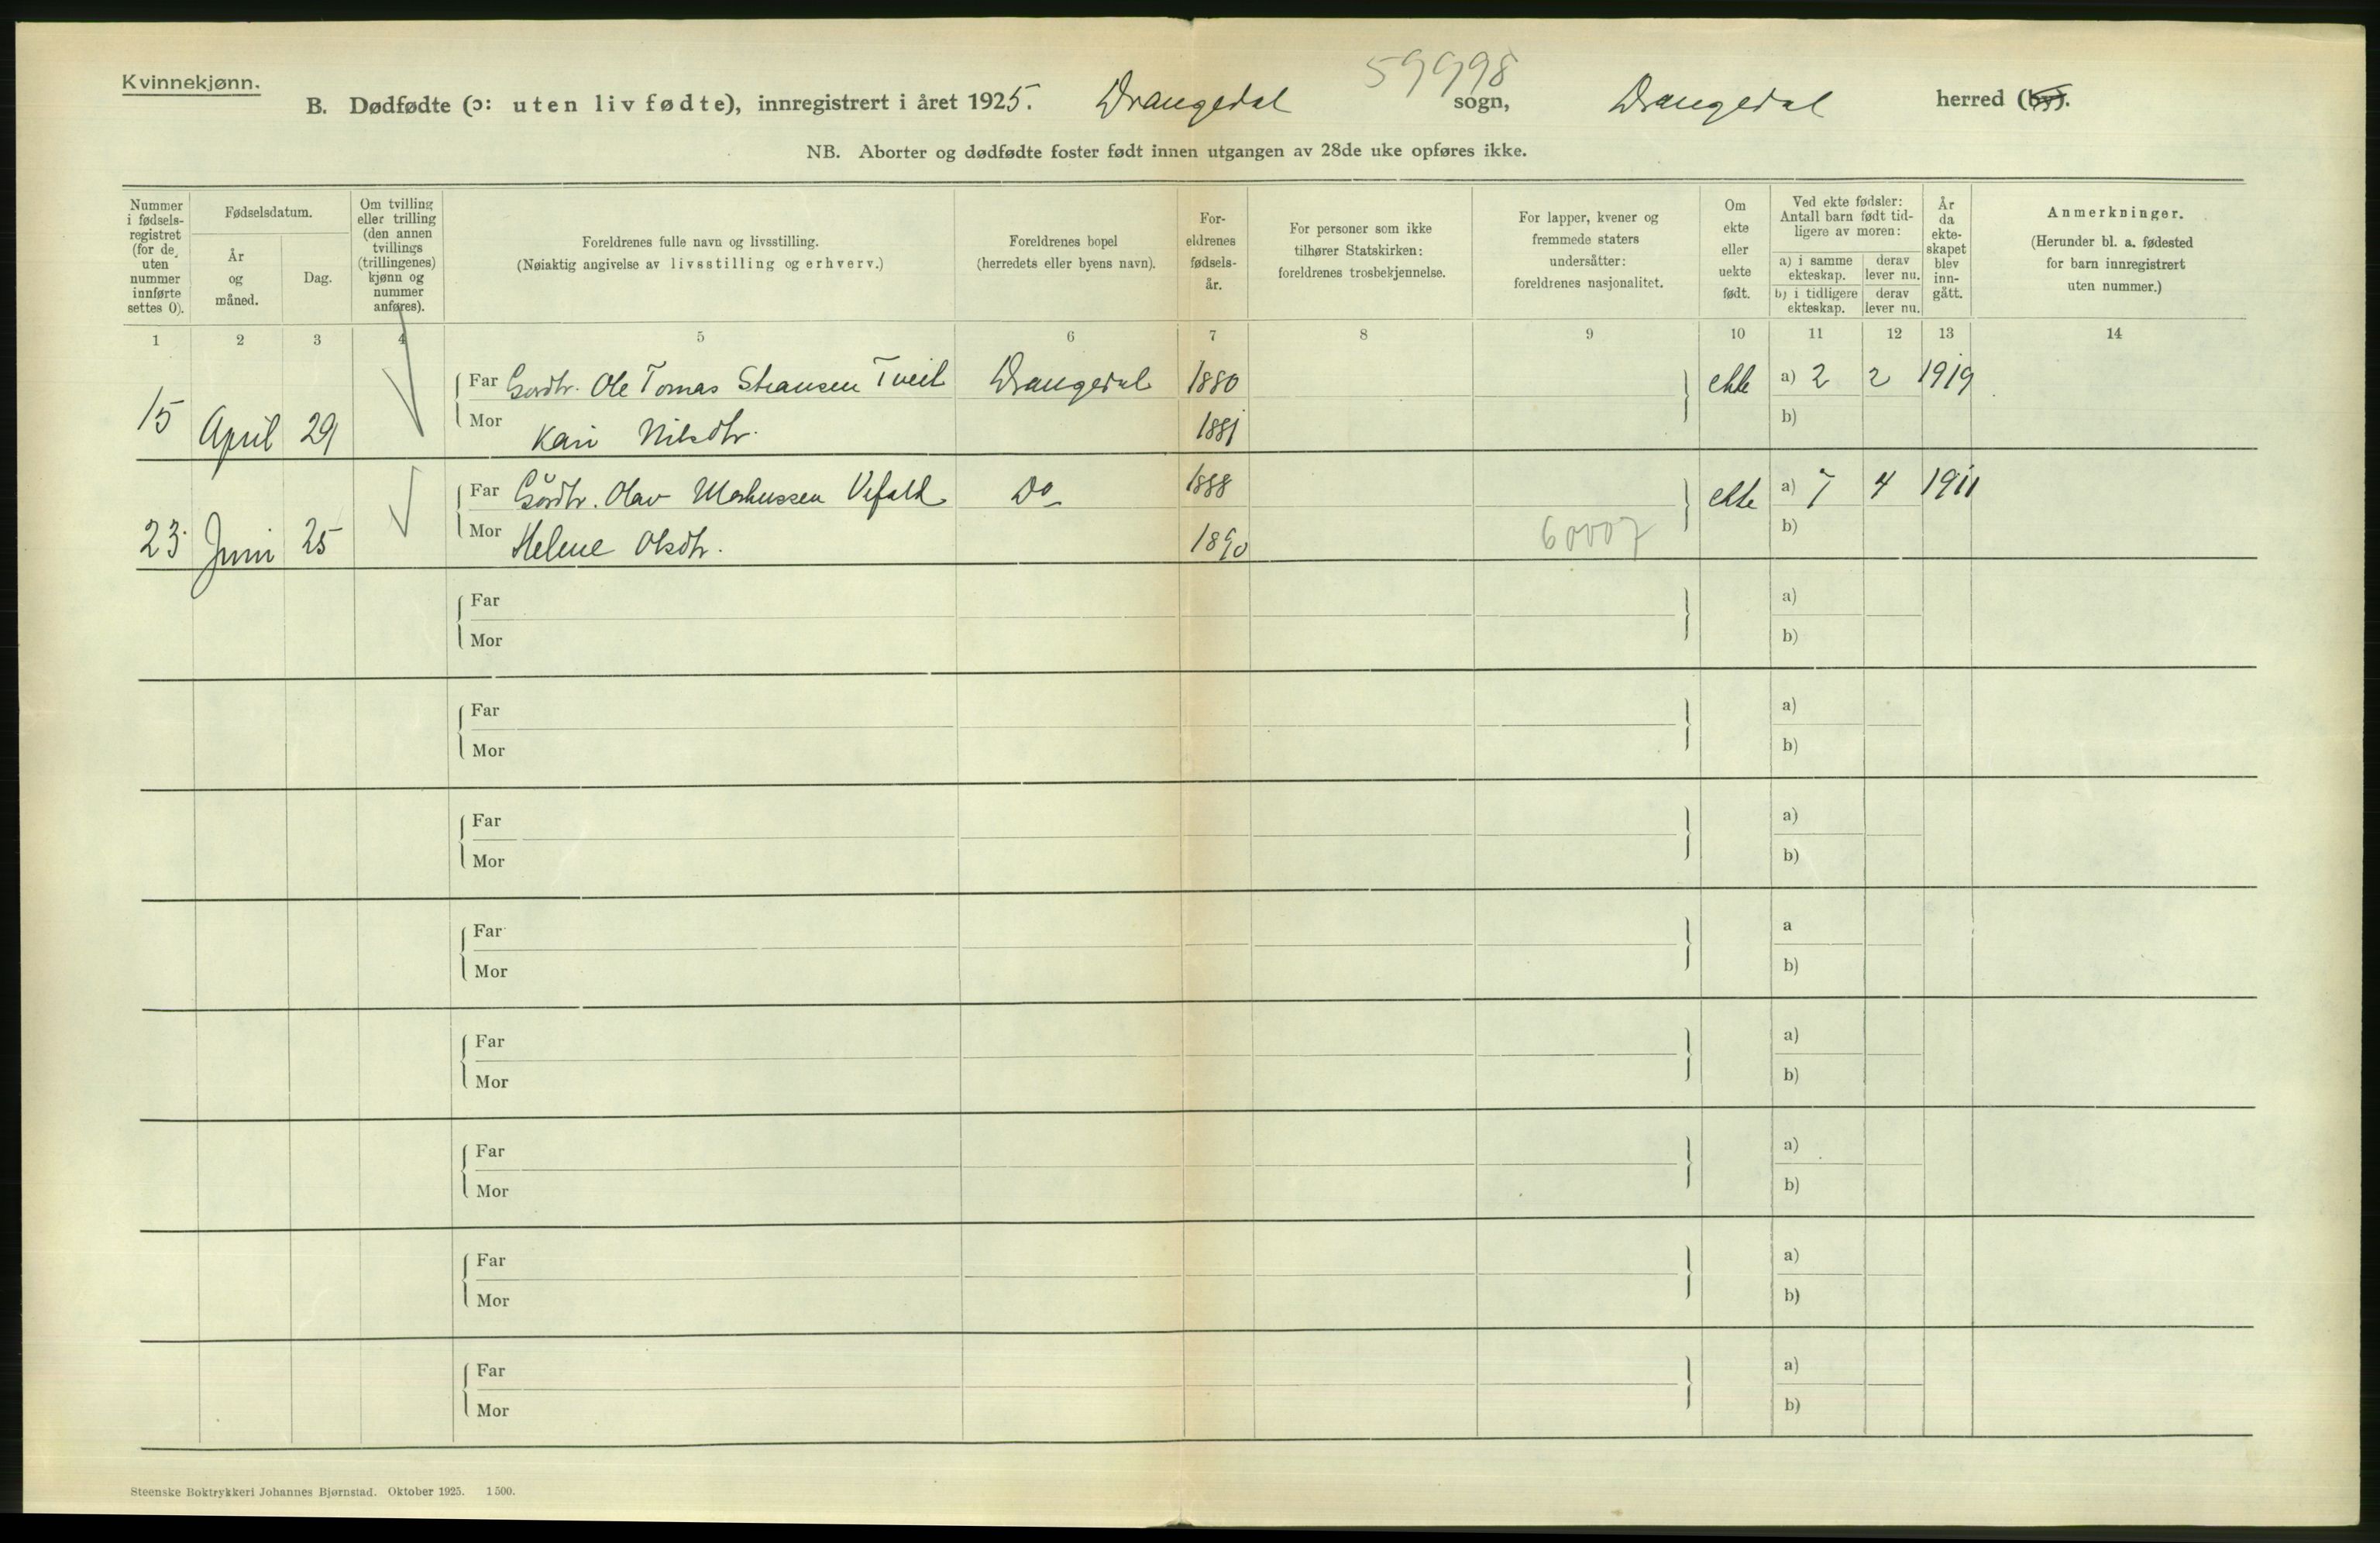 Kvinnekjønn.
59998
B. Dødfødte (ɔ: uten liv fødte), innregistrert i året 1925. Drangedal sogn, Drangedal herred (by).
NB. Aborter og dødfødte foster født innen utgangen av 28de uke opføres ikke.
Nummer i fødsels-registret (for de uten nummer innførte settes 0).
Fødselsdatum.
År og måned.
Dag.
Om tvilling eller trilling (den annen tvillings (trillingenes) kjønn og nummer anføres).
Foreldrenes fulle navn og livsstilling.
(Nøiaktig angivelse av livsstilling og erhverv.)
Foreldrenes bopel
(herredets eller byens navn).
For-eldrenes fødsels-år.
For personer som ikke tilhører Statskirken: foreldrenes trosbekjennelse.
For lapper, kvener og fremmede staters undersåtter: foreldrenes nasjonalitet.
Om ekte eller uekte født.
Ved ekte fødsler: Antall barn født tid-ligere av moren:
a) i samme ekteskap. derav lever nu.
b) i tidligere ekteskap. derav lever nu.
År da ekte-skapet blev inn-gått.
Anmerkninger.
(Herunder bl. a. fødested for barn innregistrert uten nummer.)
1 2 3 4 5 6 7 8 9 10 11 12 13 14
Far Gardbr. Ole Tomas Tveit Drangedal 1880 ekte a) 2 2 1919
15 April 29 Mor Kari Nilsdtr. 1881 b)
Far Gårdbr. Olav Vefald Do 1888 ekte a) 7 4 1911
23 Juni 25 Mor Helene Olsdtr. 1890 60007 b)
Far a)
Mor b)
Far a)
Mor b)
Far a)
Mor b)
Far a
Mor b)
Far a)
Mor b)
Far a)
Mor b)
Far a)
Mor b)
Far a)
Mor b)
Steenske Boktrykkeri Johannes Bjørnstad. Oktober 1925. 1500.